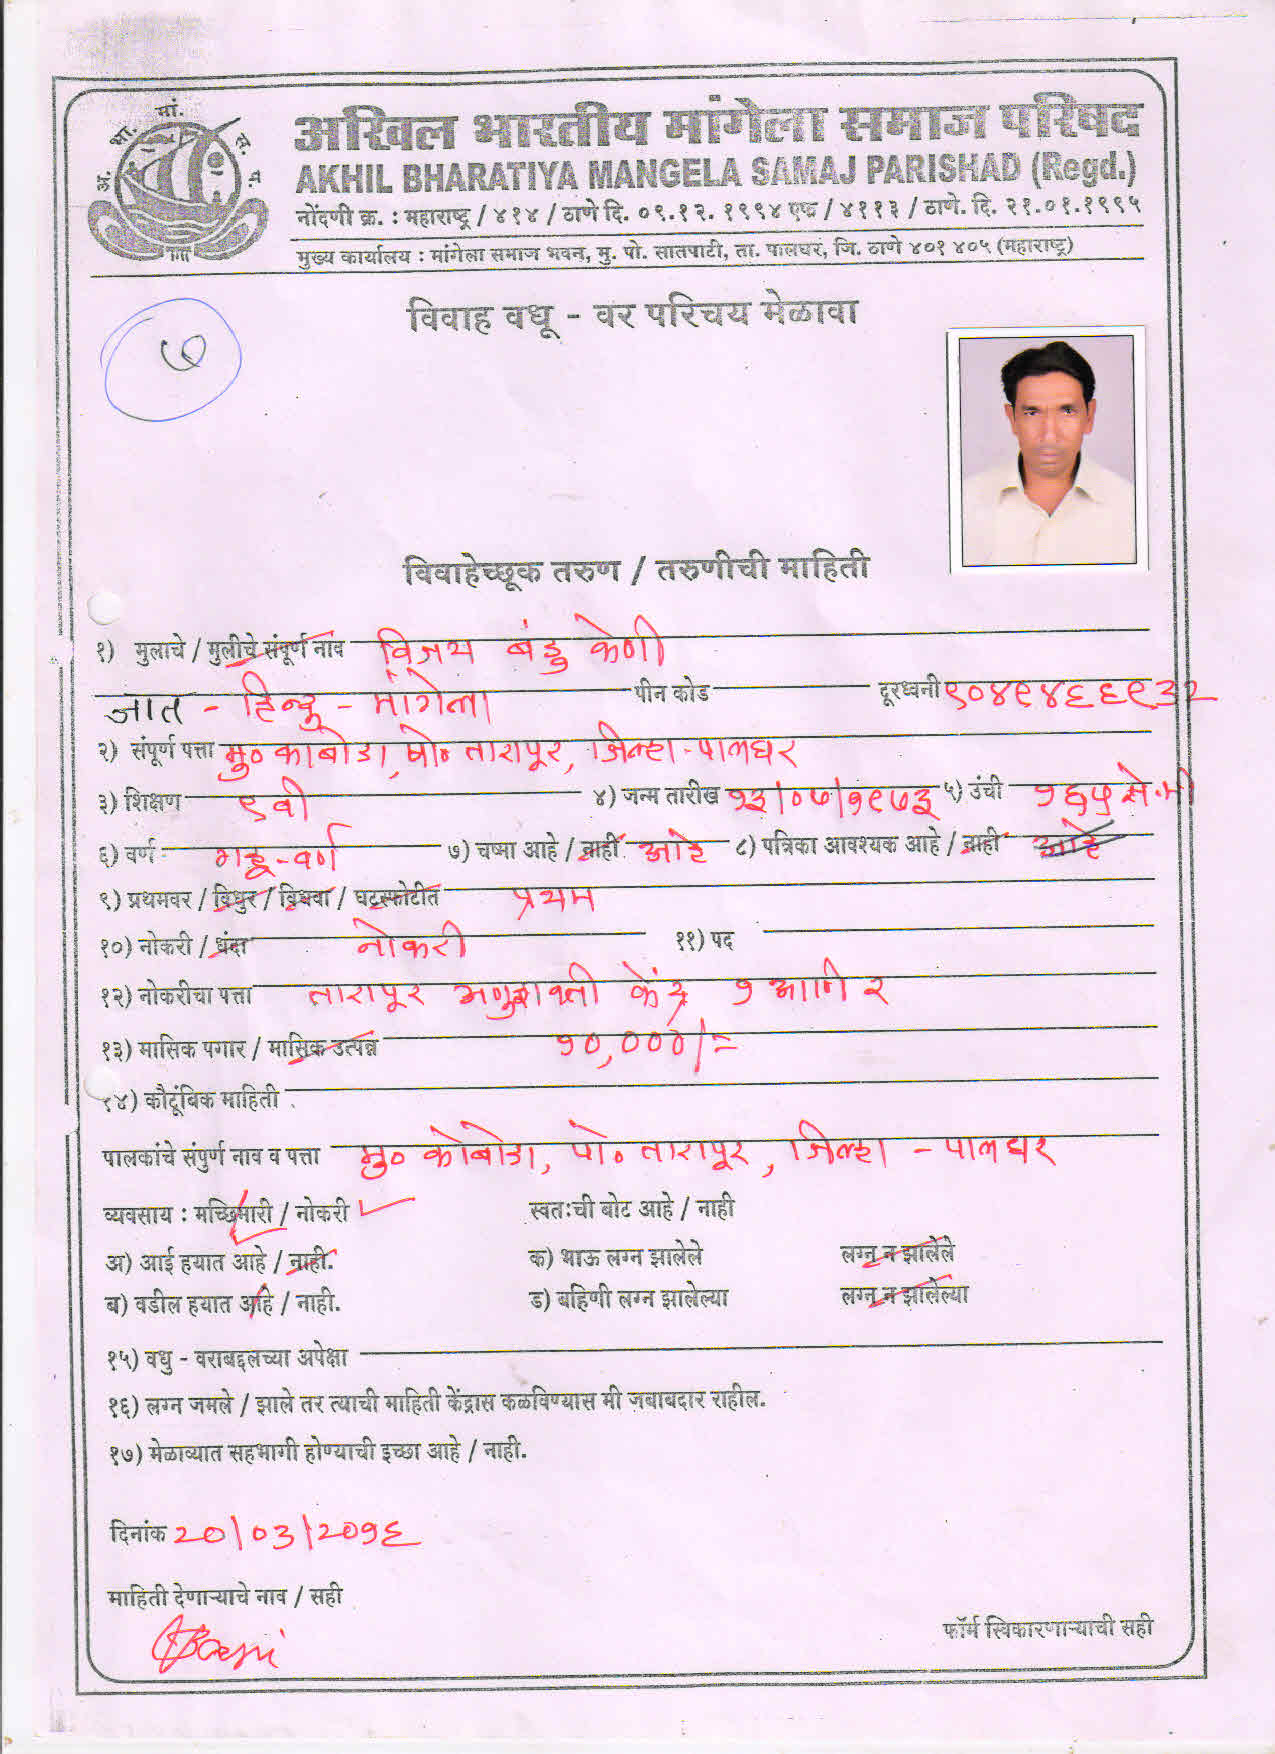 अ. भा. मां. स. प.
अखिल भारतीय मांगेला समाज परिषद
AKHIL BHARATIYA MANGELA SAMAJ PARISHAD (Regd.)
नोंदणी क्र. : महाराष्ट्र / ४१४ / ठाणे दि. ०९.१२. १९९४ एफ / ४११३ / ठाणे. दि. २१.०१.१९९५
मुख्य कार्यालय : मांगेला समाज भवन, मु. पो. सातपाटी, ता. पालघर, जि. ठाणे ४०१ ४०५ (महाराष्ट्र)
विवाह वधू - वर परिचय मेळावा
७
विवाहेच्छूक तरुण / तरुणीची माहिती
१) मुलाचे / मुलीचे संपूर्ण नाव विजय बंडु केणी
जात - हिन्दु - मांगेला पीन कोड दूरध्वनी ९०४९४६६९३२
२) संपूर्ण पत्ता मु० काबोडा, पो० तारापूर, जिल्हा - पालघर
३) शिक्षण ९वी ४) जन्म तारीख १३/०७/१९७३ ५) उंची १६५ से.मी
६) वर्ण गहू-वर्ण ७) चष्मा आहे / नाही आहे ८) पत्रिका आवश्यक आहे / नाही आहे
९) प्रथमवर / विधुर / विधवा / घटस्फोटीत प्रथम
१०) नोकरी / धंदा नोकरी ११) पद
१२) नोकरीचा पत्ता तारापूर अणुशक्ती केंद्र १ आणि २
१३) मासिक पगार / मासिक उत्पन्न १०,०००/=
१४) कौटूंबिक माहिती
पालकांचे संपुर्ण नाव व पत्ता मु० कोबोडा, पो० तारापूर, जिल्हा - पालघर
व्यवसाय : मच्छिमारी / नोकरी स्वतःची बोट आहे / नाही
अ) आई हयात आहे / नाही. क) भाऊ लग्न झालेले लग्न न झालेले
ब) वडील हयात आहे / नाही. ड) बहिणी लग्न झालेल्या लग्न न झालेल्या
१५) वधु - वराबद्दलच्या अपेक्षा
१६) लग्न जमले / झाले तर त्याची माहिती केंद्रास कळविण्यास मी जबाबदार राहील.
१७) मेळाव्यात सहभागी होण्याची इच्छा आहे / नाही.
दिनांक २०/०३/२०१६
माहिती देणाऱ्याचे नाव / सही
फॉर्म स्विकारणाऱ्याची सही